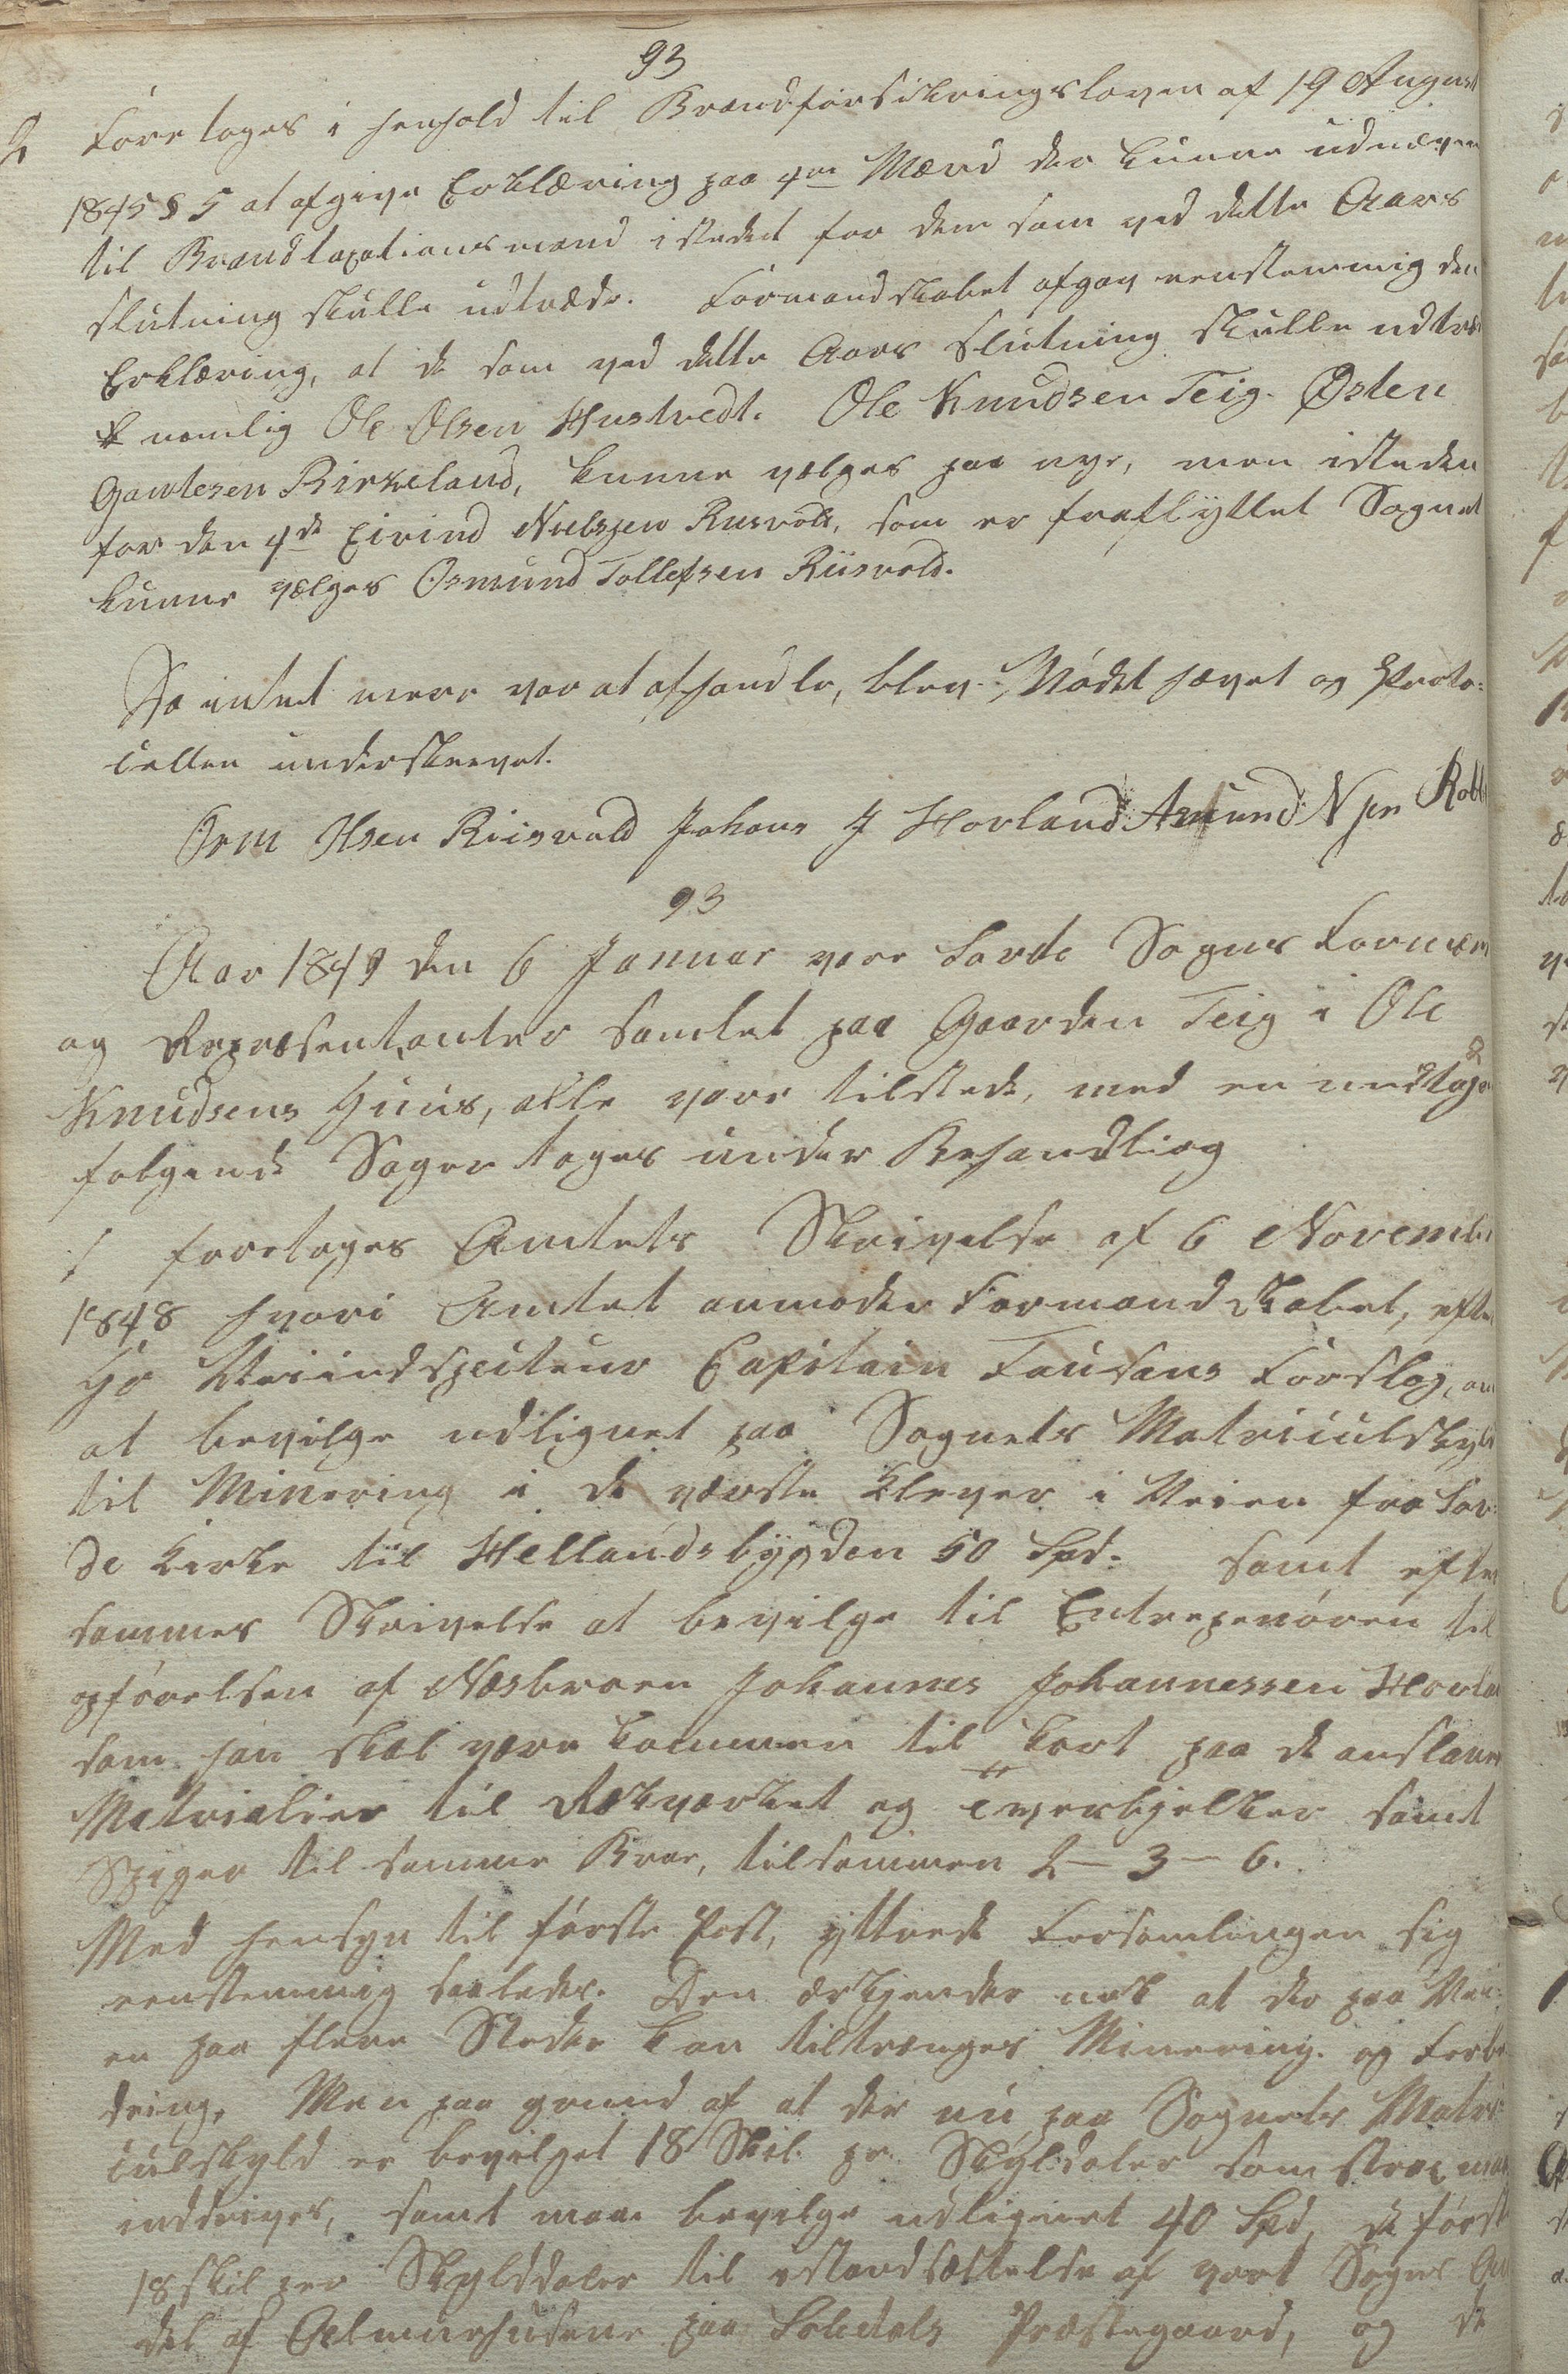 93
2 Foretoges i henhold til Brandforsikringsloven af 19 August
1845 § 5 at afgive Erklæring paa 4re Mænd der kunne udnævnes
til Brandtaxationsmænd istedet for dem som ved dette Aars
slutning skulle udtræde. Formandskabet afgav eenstemmig den
Erklæring, at de som ved dette Aars Slutning skulle udtræ
nemlig Ole Olsen Hustvedt. Ole Knudsen Teig. Østen
Gautesen Birkeland, kunne vælges paa nye, men isteden
for den 4de Eivind Nielsen Riisvold, som er fraflyttet Sognet
kunne vælges Osmund Tollefsen Riisvold.
Da intet mere var at afhandle, blev Mødet hævet og Proto-
collen underskrevet.
Orm Olsen Riisvold Johans J Hovland Asmund N sen
93
Aar 1849 den 6 Januar vare Savde Sogns Formæn
og Repræsentanter samlet paa Gaarden Teig i Ole
Knudsens Huus, alle vare tilstede, med en undtagel
følgende Sager toges under Behandling
1 foretoges Amtets Skrivelse af 6 November
1848 hvori Amtet anmoder Formandskabet, efter
Hr Veiindspecteur Capitain Fausans Forslag, om
at bevilge udlignet paa Sognets Matriculskyld
til Minering i de værste Klever i Veien fra Sav-
de Kirke til Hellandsbygden 50 Spd. samt efter
sammes Skrivelse at bevilge til Entreprenøren til
opførelsen af Næsbroen Johannes Johannessen Hovla
som han skal være kommen til kort paa de anslaaede
Matrialier til Rækværket og Tverbjelker samt
Spiger til samme Broe, tilsammen 2 - 3 - 6.
Med hensyn til første Post, yttrede Forsamlingen sig
eenstemmig saaledes. Den erkjender nok at der paa Vei-
en paa flere Steder kan tiltrænges Minering og Forbe
dring, Men paa grund af at der nu paa Sognets Matri-
culskyld er bevilget 18 Skil. pr. Skylddaler som strax maa
inddrives, samt maae bevilge udlignet 40 Spd, de første
18 skil per Skylddaler til istandsættelse af vort Sogns An
del af Aalmuehusene paa Præstegaard, og de